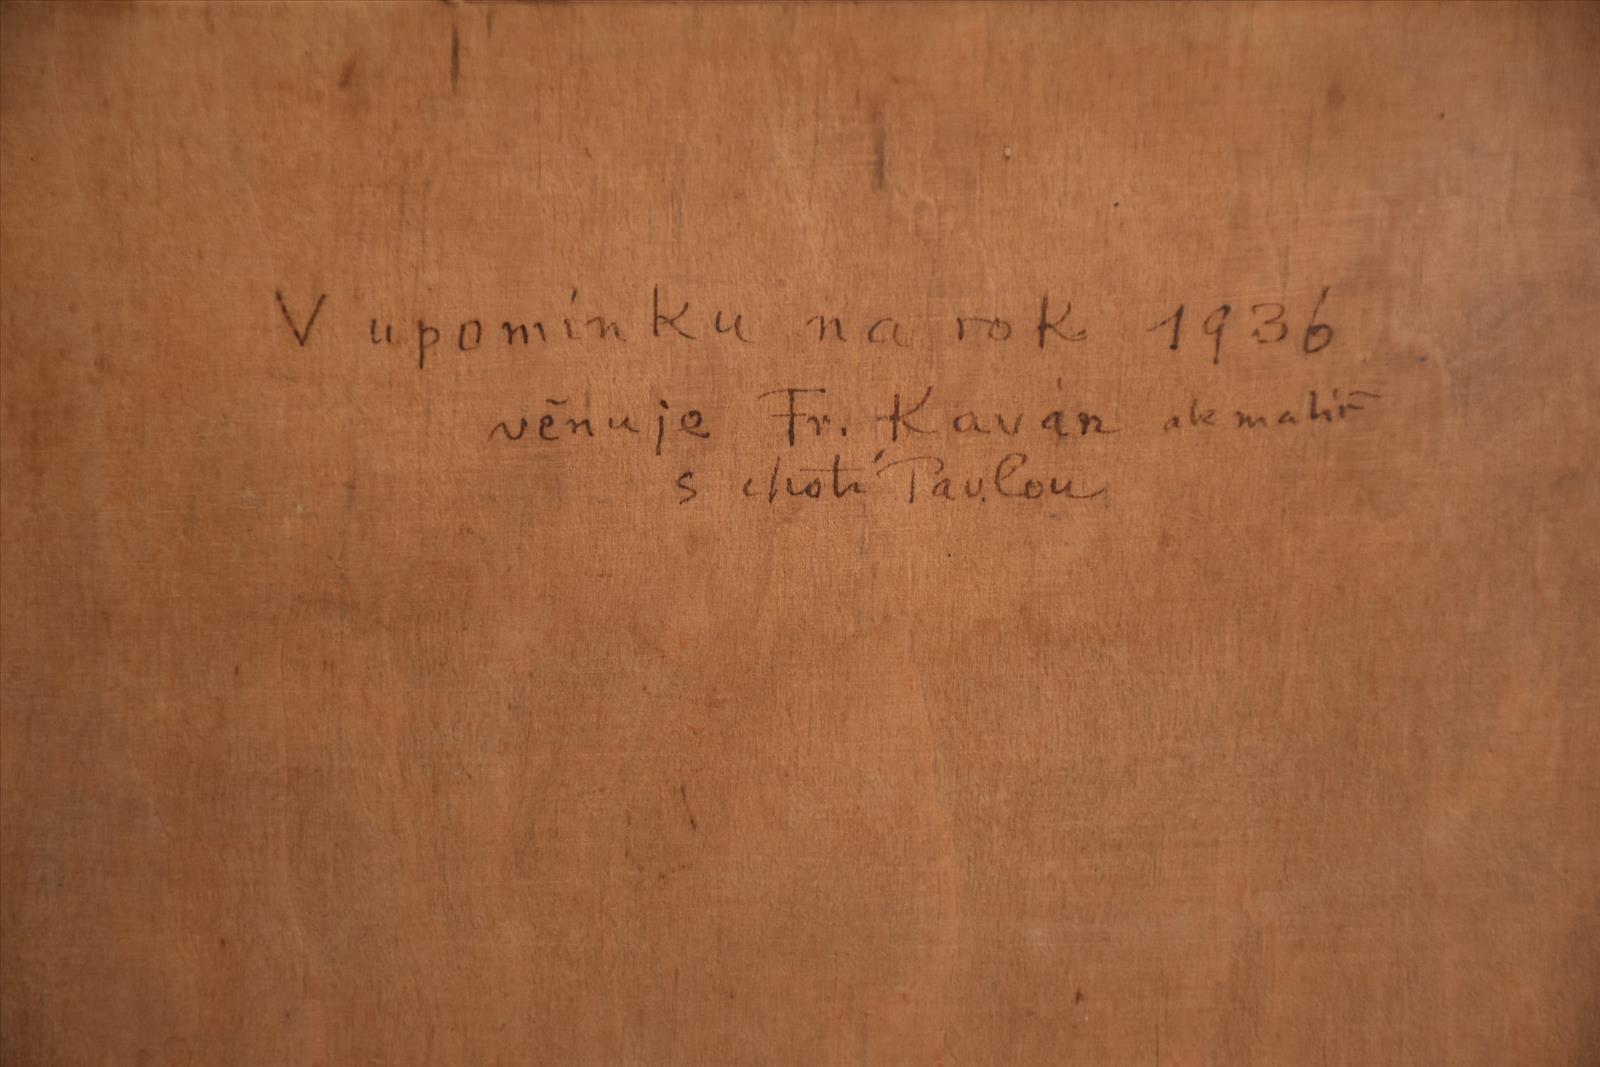 V upomínku na rok 1936
věnuje Fr. Kaván ak malíř
s chotí Pavlou